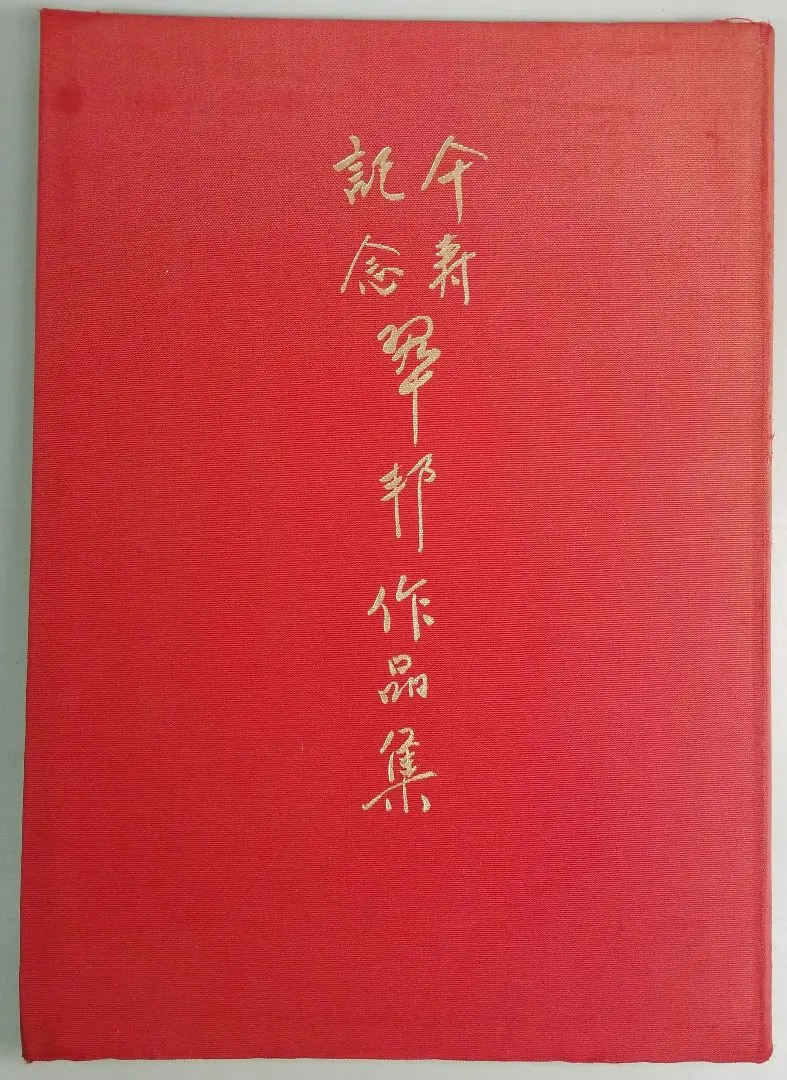 仐寿
記念
翠邦作品集